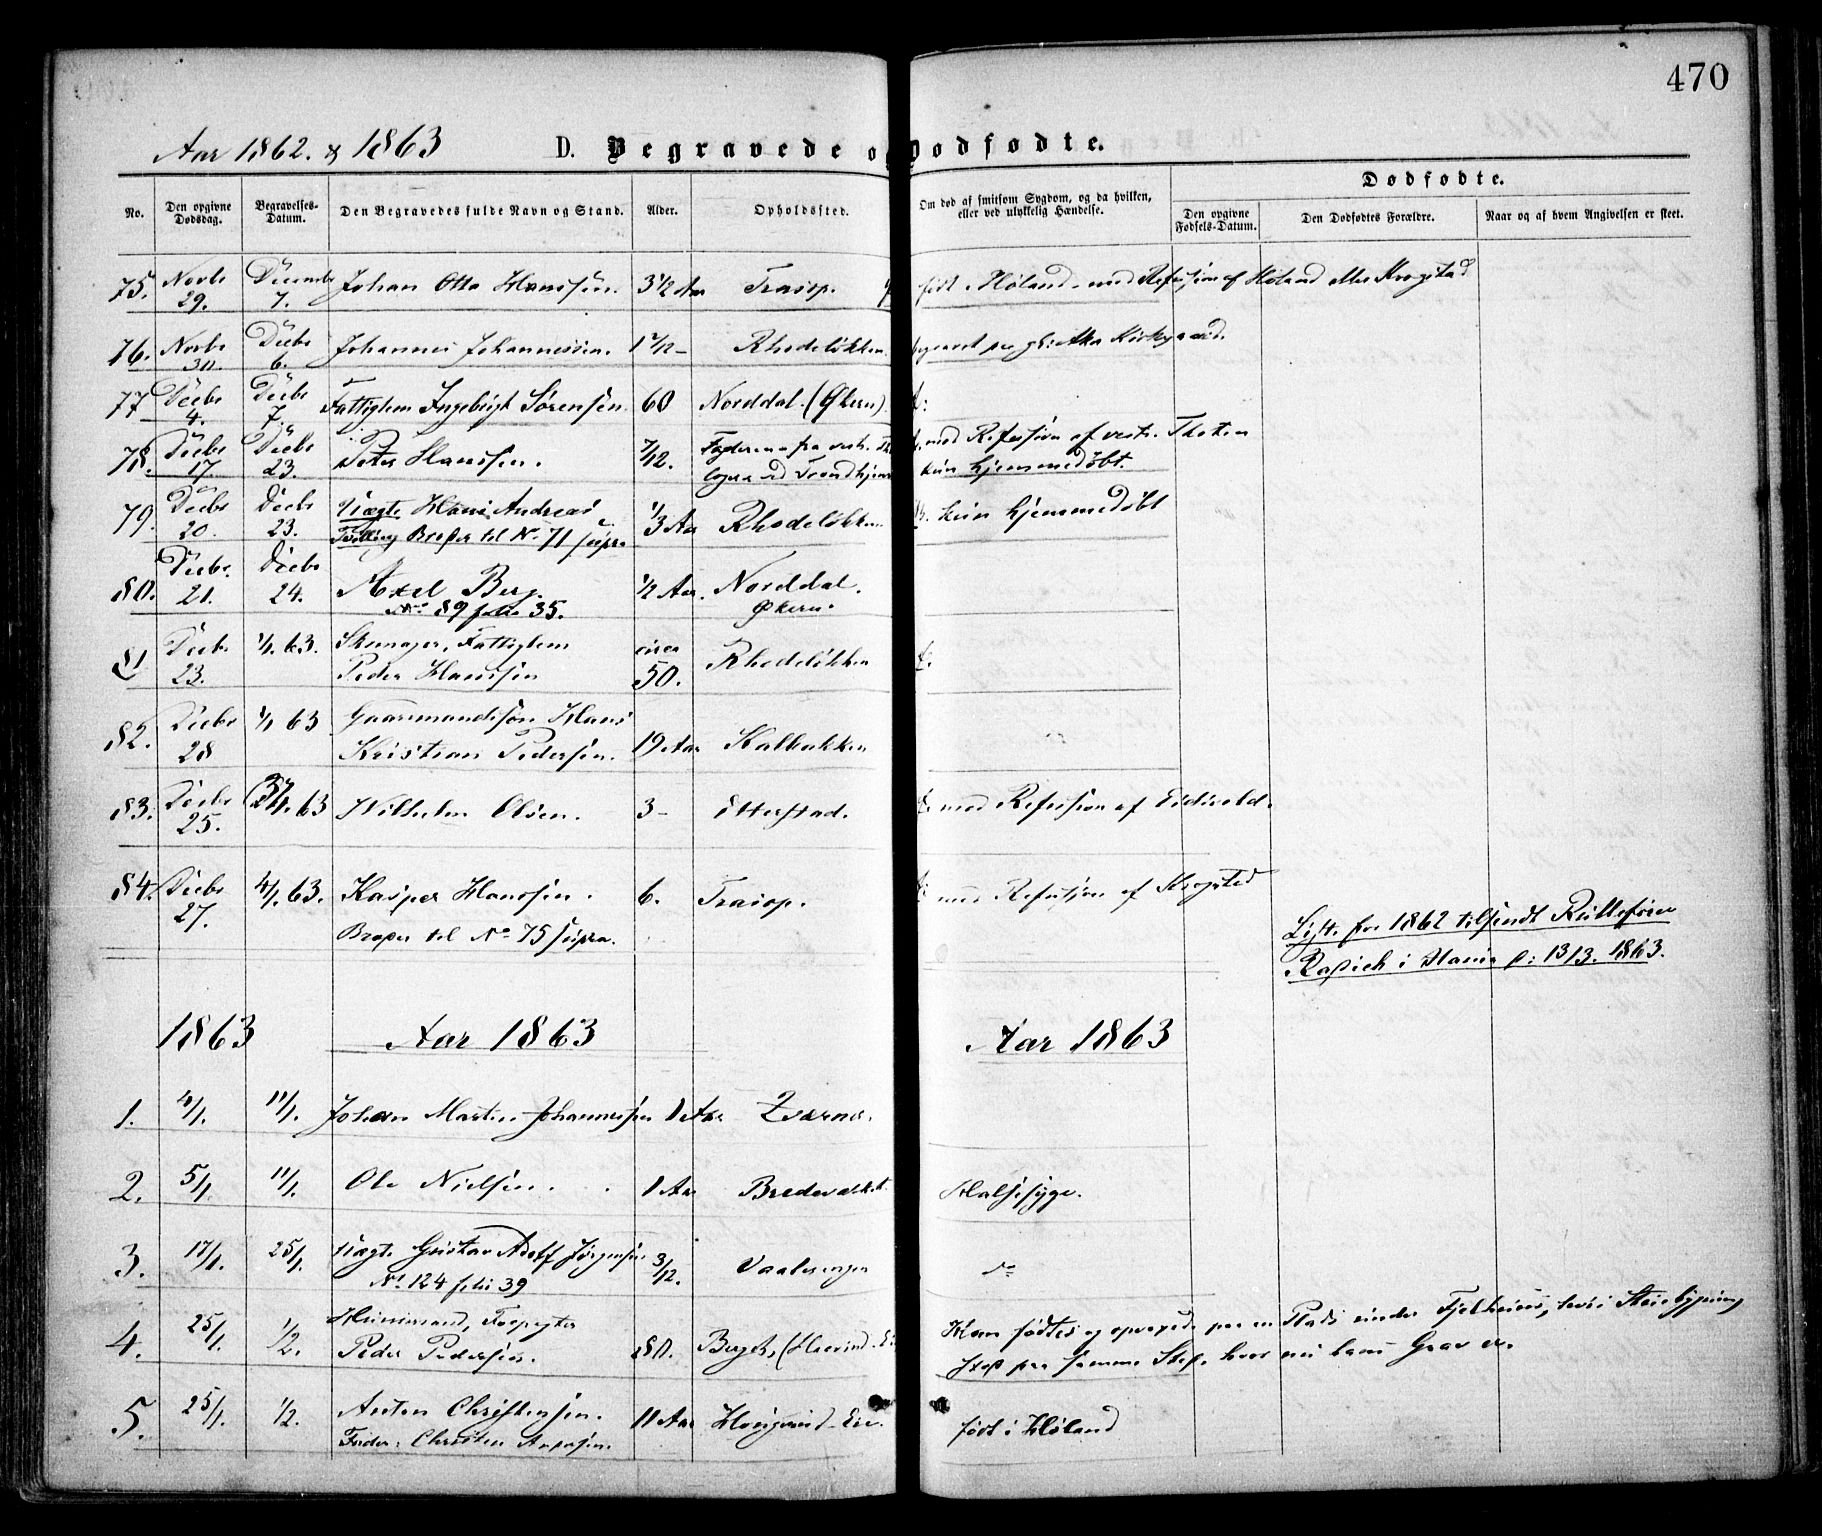 470
Aar 1862. & 1863 D. Begravede o Dødfødte.
No. Den opgivne Dødsdag. Begravelses-Datum. Den Begravedes fulde Navn og Stand. Alder. Opholdssted. Om død af smitsom Sygdom, og da hvilken, eller ved ulykkelig Hændelse. Dødfødte.
Den opgivne Fødsels-Datum. Den Dødfødtes Forældre. Naar og af hvem Angivelsen er skeet.
75. Novbr 29. Decembr 7. Johan Otto Hanssen. 3 1/2 Aar Trasop. født i Høland med Refusion af Høland eller Krogstad
76. Novbr 30. Decbr 6. Johannes Johannessen. 1 2/12 - Rhodeløkken. Kirkegaard.
77 Decbr 4. Decbr 7. Fattiglem Ingebrigt Sørensen 60 Norddal. (Økern)
78. Decbr 17. Decbr 23. Peter Hanssen. 7/12. med Refusion af vestr. Thoten
kun hjemmedøbt.
79. Decbr 20. Decbr 23. Uægte Hans Andreas 1/3 Aar Rhodeløkken kun hjemmedøbt
Tvilling Broder til No 71 supra
80. Decbr. 21. Decbr 24. Axel Berg. 1/2 Aar. Norddal.
No 89 folio 35. Økern.
81 Decbr 23. 1/1. 63. Skomager, Fattiglem circa Rhodeløkken
Peder Hanssen 50.
82. Decbr 28 1/1 63 Gaarmandssøn Hans
Kristian Pedersen. 19 Aar Kalbakken
83. Decbr 25. 63 Wilhelm Olsen. 3 - Etterstad. med Refusion af Eidsvold.
84. Decbr 27. 4/1. 63. Kasper Hanssen. 6. Trasop. med Refusion af Krogstad
Broder til No 75 supra.
List. for 1862 tilsendt Rullefører
i p: 13/3. 1863.
1863 Aar 1863 Aar 1863
1. 4/1. 11/1. Johan Martin Johannessen 1 Aar
2. 5/1 11/1. Ole Nielsen. 1 Aar Bredtvedt. Halssyge.
3. 17/1. 25/1. Uægte Gustav Adolf Jørgensen 3/12. Vaalerengen do
No. 124 folio 39
4. 25/1. 1/2. Huusmand, Forpagter
Peder Pedersen. 80. Berget, Han fødtes og opvoxede paa en Plads under
paa samme Sted, hvor nu hans Grav er.
5. 25/1. 1/2. Anton Christensen. 11 Aar født i Høland
Fader: Christen